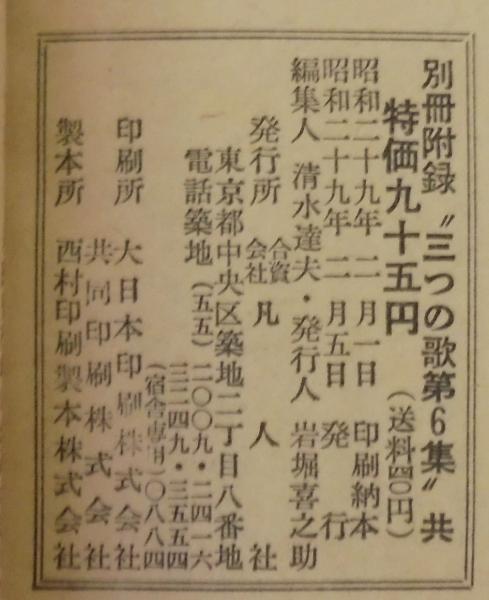 別冊附録 〝三つの歌第6集〟共
特価九十五円(送料四〇円)
昭和二十九年 二 月一日 印刷納本
昭和二十九年 二 月五日 発 行
編集人 清水達夫・発行人 岩堀喜之助
発行所 合資会社 凡 人 社
東京都中央区築地二丁目八番地
電話築地(五五)二〇〇九・二四一六
三三四九・三五五四
(宿舎専用)〇八八四
印刷所 大日本印刷株式会社
共同印刷株式会社
製本所 西村印刷製本株式会社